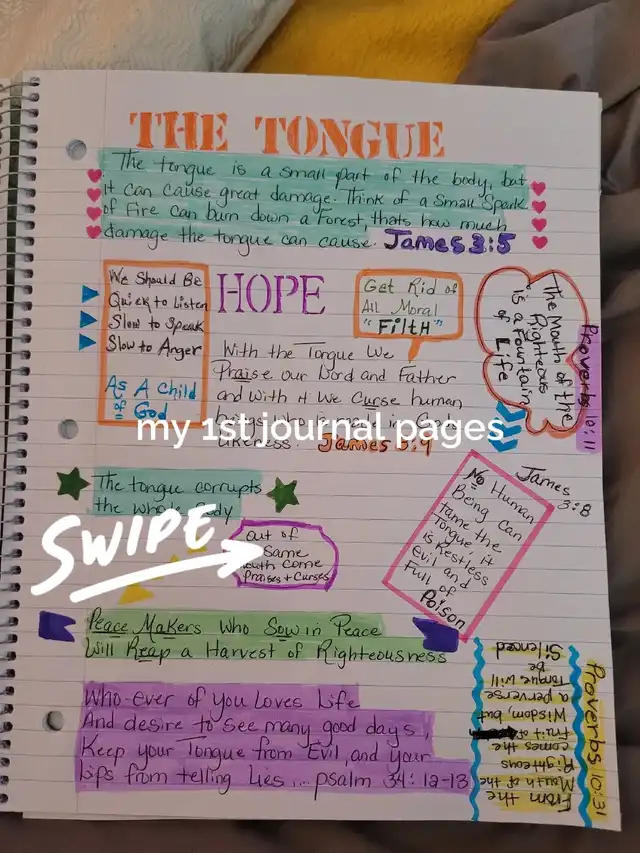 THE TONGUE
The tongue is a small part of the body, but
it can cause great damage. Think of a small spark
of Fire can burn down a Forest, thats how much
damage the tongue can cause. James 3:5
We Should Be
Quick to Listen
Slow to Speak
Slow to Anger
As A Child
of God
HOPE
Get Rid of
All Moral
"FiltH"
The Mouth of the
Righteous
is a Fountain
of Life
Proverbs 10:11
With the Tongue We
Praise our Lord and Father
and with it We Curse human
likeness. James 3:9
my 1st journal pages
The tongue corrupts
the whole body
SWIPE
out of
Same
mouth come
Praises + Curses
James
3:8
No Human
Being Can
tame the
Tongue, it
is Restless
Evil and
Full of
Poison
Peace Makers Who Sow in Peace
Will Reap a Harvest of Righteousness
Who-ever of you Loves Life
And desire to see many good days,
Keep your Tongue from Evil, and your
Lips from telling Lies... psalm 34:12-13
From the
Mouth of the
Righteous
comes the
Fruit of
Wisdom, but
a perverse
Tongue will
be
Silenced
Proverbs 10:31